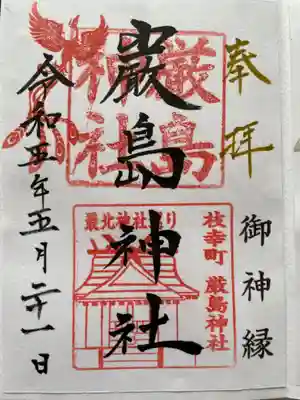 奉拝
御神縁
巌島神社
厳島
神社
枝幸町 厳島神社
最北神社
令和五年五月二十一日